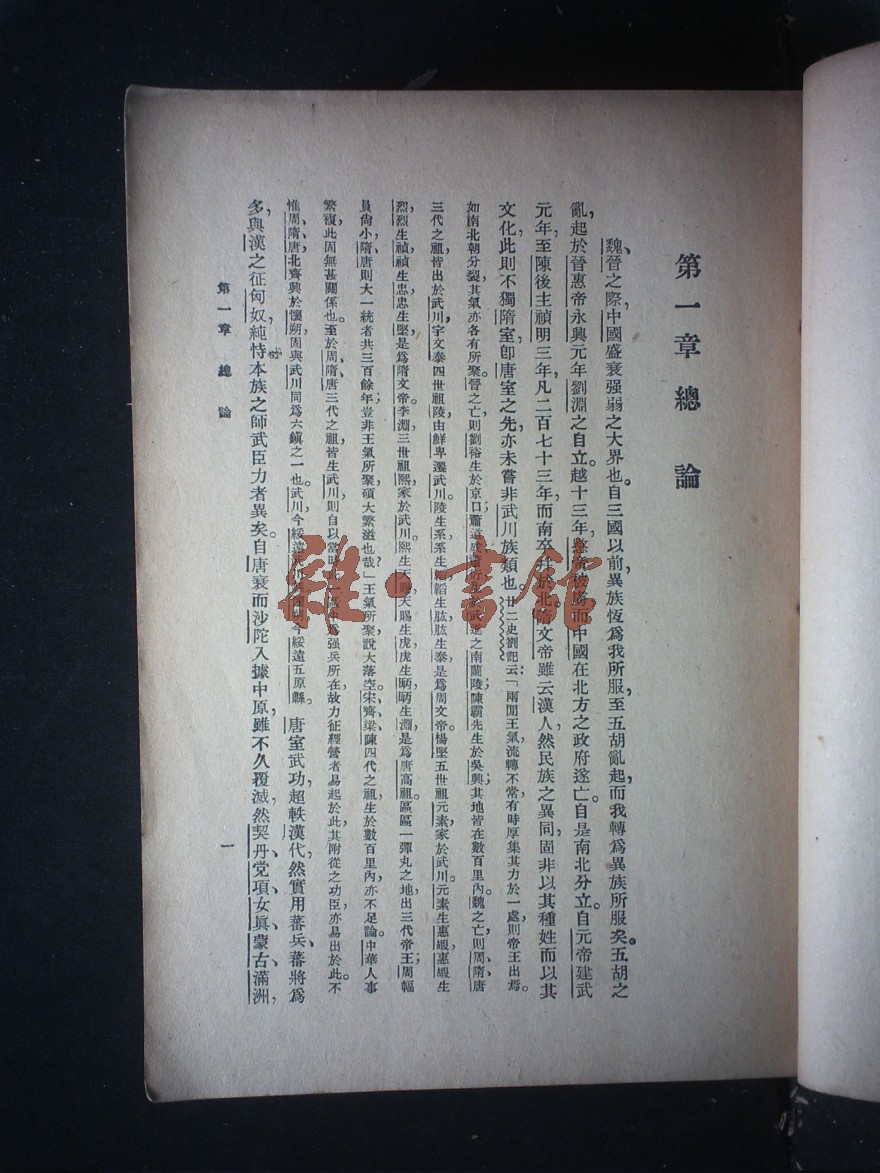 第一章 總論
魏、晉之際，中國盛衰强弱之大界也。自三國以前，異族恆爲我所服，至五胡亂起，而我轉爲異族所服矣。五胡之
亂，起於晉惠帝永興元年劉淵之自立。越十三年，愍帝被虜，而中國在北方之政府遂亡。自是南北分立。自元帝建武
元年，至陳後主禎明三年，凡二百七十三年，而南卒幷於北。隋文帝雖云漢人，然民族之異同，固非以其種姓而以其
文化，此則不獨隋室，卽唐室之先，亦未嘗非武川族類也。廿二史劄記云：「兩間王氣，流轉不常，有時厚集其力於一處，則帝王出焉。
如南北朝分裂，其氣亦各有所聚。晉之亡，則劉裕生於京口；蕭道成、蕭衍生於武進之南蘭陵；陳霸先生於吳興；其地皆在數百里內。魏之亡，則周、隋、唐
三代之祖，皆出於武川，宇文泰四世祖陵，由鮮卑遷武川。陵生系，系生韜，韜生肱，肱生泰，是爲周文帝。楊堅五世祖元素，家於武川。元素生惠嘏，惠嘏生
烈，烈生禎，禎生忠，忠生堅，是爲隋文帝。李淵，三世祖熙，家於武川。熙生天賜，天賜生虎，虎生昞，昞生淵，是爲唐高祖。區區一彈丸之地，出三代帝王；周幅
員尙小，隋、唐則大一統者，共三百餘年；豈非王氣所聚，碩大繁滋也哉？」王氣所聚，說大落空。宋、齊、梁、陳四代之祖，生於數百里內，亦不足論。中華人事
繁複，此固無甚關係也。至於周、隋、唐三代之祖，皆生武川，則自以當時此一區中爲强兵所在，故力征經營者易起於此，其附從之功臣，亦易出於此。不
惟周、隋、唐，北齊興於懷朔，固與武川同爲六鎭之一也。武川，今綏遠武川縣。懷朔，今綏遠五原縣。唐室武功，超軼漢代，然實用蕃兵、蕃將爲
多，與漢之征匈奴，純恃本族之師武臣力者異矣。自唐衰而沙陀入據中原，雖不久覆滅，然契丹、党項、女眞、蒙古、滿洲，
第一章 總論
一
雜·書館